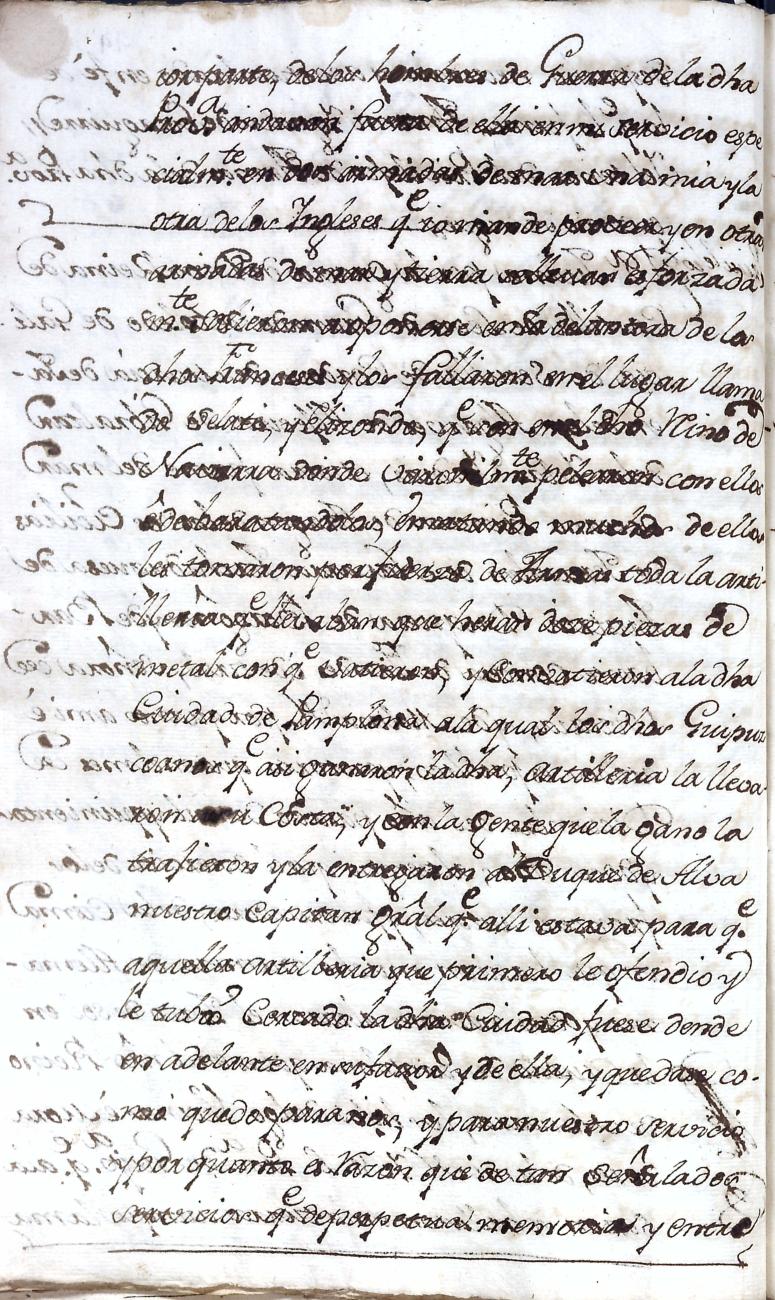 ior parte, delos hombres de Guerra dela dha
Prov.ª andavan fuera de ella en mi servicio espe
cialm.te en dos armadas de mar una mia y la
otra delos Ingleses q.e io mande proveer y en otras
armadas de mar y tierra esforzada
m.te salieron a ponerse en la delantera de los
dhos Franceses y los fallaron en el lugar llama
do Velate, y Elizondo, q.e son en el dho Reino de
Navarra donde m.te pelearon con ellos
e desbaratandolos, e matando muchos de ellos
les tomaron por fuerza de Armas toda la arti-
lleria q.e llevaban que heran doze piezas de
metal con q.e batieron, y Convatieron ala dha
Ciudad de Pamplona ala qual los dhos Guipuz
coanos q.e asi ganaron la dha, artilleria la lleva
ron a su Costa, y con la gente que la gano la
trajieron y la entregaron al Duque de Alva
nuestro Capitan Grâl q.e alli estava para q.e
aquella artilleria que primero le ofendio y
le tubo Cercado la dha Ciudad fuese dende
en adelante en su favor y de ella, y quedase co-
mo quedo para nos, y para nuestro servicio
y por quanto es razon que de tan Señalados
servicios q.e de perpetua memoria y entre